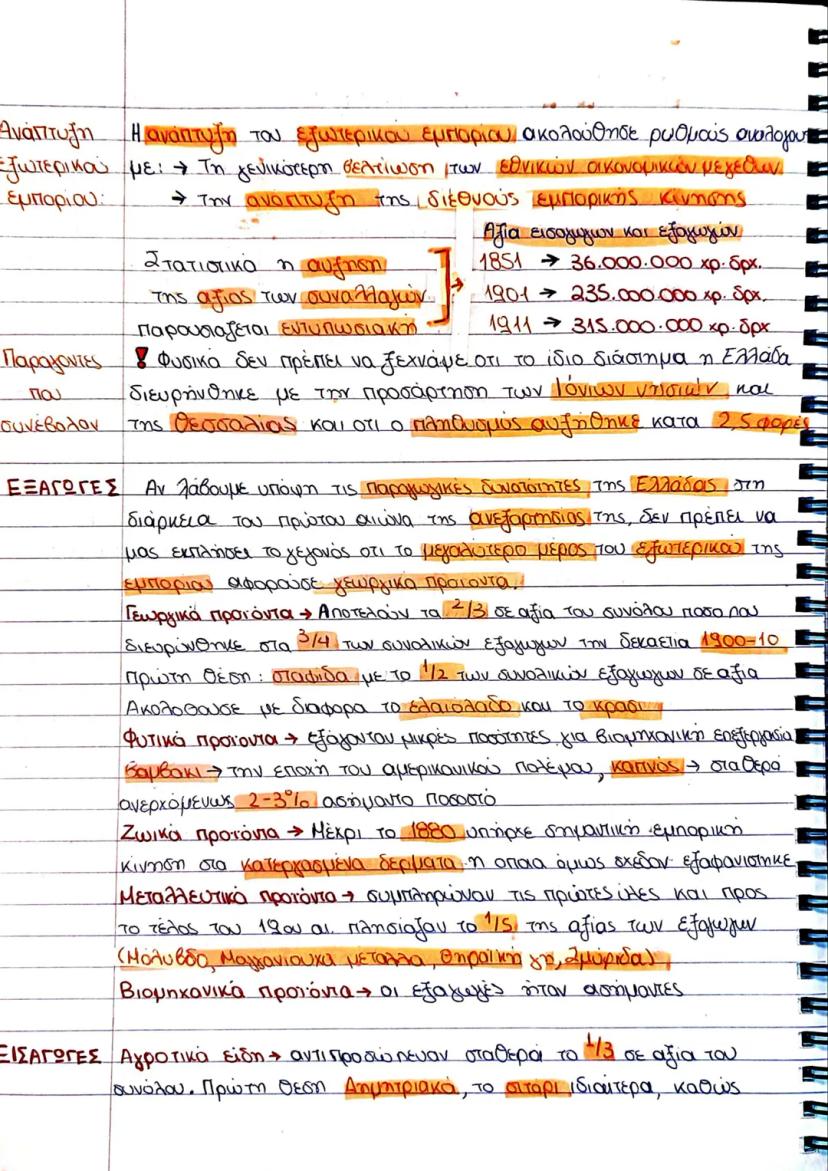 Ανάπτυξη Η ανάπτυξη του εξωτερικού εμπορίου ακολούθησε ρυθμούς αναλογου
εξωτερικού με: → Τη γενικότερη βελτίωση των εθνικών οικονομικών μεγεθών
εμποριου: → Την αναπτυξη της διεθνούς εμπορικής κίνησης
Αξία εισαγωγων και εξαγωγών
Στατιστικά η αυξηση 1851 → 36.000.000 χρ. δρχ.
της αξιας των συναλλαγών 1901 → 235.000.000 χρ. δρχ.
παρουσιαζεται εντυπωσιακή 1911 → 315.000.000 χρ. δρχ
Παραγοντες ! Φυσικά δεν πρέπει να ξεχνάμε οτι το ίδιο διάστημα η Ελλάδα
που διευρήνθηκε με την προσάρτηση των Ιόνιων νησιών και
συνέβαλαν της Θεσσαλίας και οτι ο πληθυσμός αυξήθηκε κατα 2,5 φορές
ΕΞΑΓΩΓΕΣ Αν λάβουμε υπόψη τις παραγωγικές δυνατότητες της Ελλάδας στη
διάρκεια του πρώτου αιώνα της ανεξαρτησίας της, δεν πρέπει να
μας εκπλήσει το γεγονός οτι το μεγαλύτερο μέρος του εξωτερικού της
εμποριου αφορούσε γεωργικά προιοντα.
Γεωργικά προιόντα → Αποτελούν τα 2/3 σε αξία του συνόλου ποσο που
διευρύνθηκε στα 3/4 των συνολικών εξαγωγων την δεκαετια 1900-10
Πρώτη θέση: σταφιδα με το 1/2 των συνολικών εξαγωγων σε αξία
Ακολοθουσε με διαφορα το ελαιόλαδο και το κρασι
Φυτικά προιοντα → εξάγονταν μικρές ποσότητες για βιομηχανική επεξεργασία
Βαμβακι → την εποχή του αμερικανικού πολέμου, καπνός → σταθερά
ανερχόμενως 2-3% ασήμαντο ποσοστό
Ζωικά προιόντα → Μέχρι το 1880 υπήρχε σημαντική εμπορική
κινηση στα κατεργασμένα δερματα η οποια όμως σχεδον εξαφανιστηκε
Μεταλλευτικά προιόντα → συμπληρώναν τις πρώτες ύλες και προς
το τέλος του 19ου αι. πλησίαζαν το 1/5 της αξίας των εξαγωγων
(Μόλυβδο, Μαγγανιουχα μεταλλα, Θηραϊκή γη, Σμύριδα)
Βιομηχανικά προιόντα → οι εξαγωγές ήταν ασήμαντες
ΕΙΣΑΓΩΓΕΣ Αγροτικά είδη → αντιπροσώπευαν σταθερά το 1/3 σε αξία του
συνόλου. Πρώτη θέση Δημητριακά, το σιτάρι ιδιαίτερα, καθώς